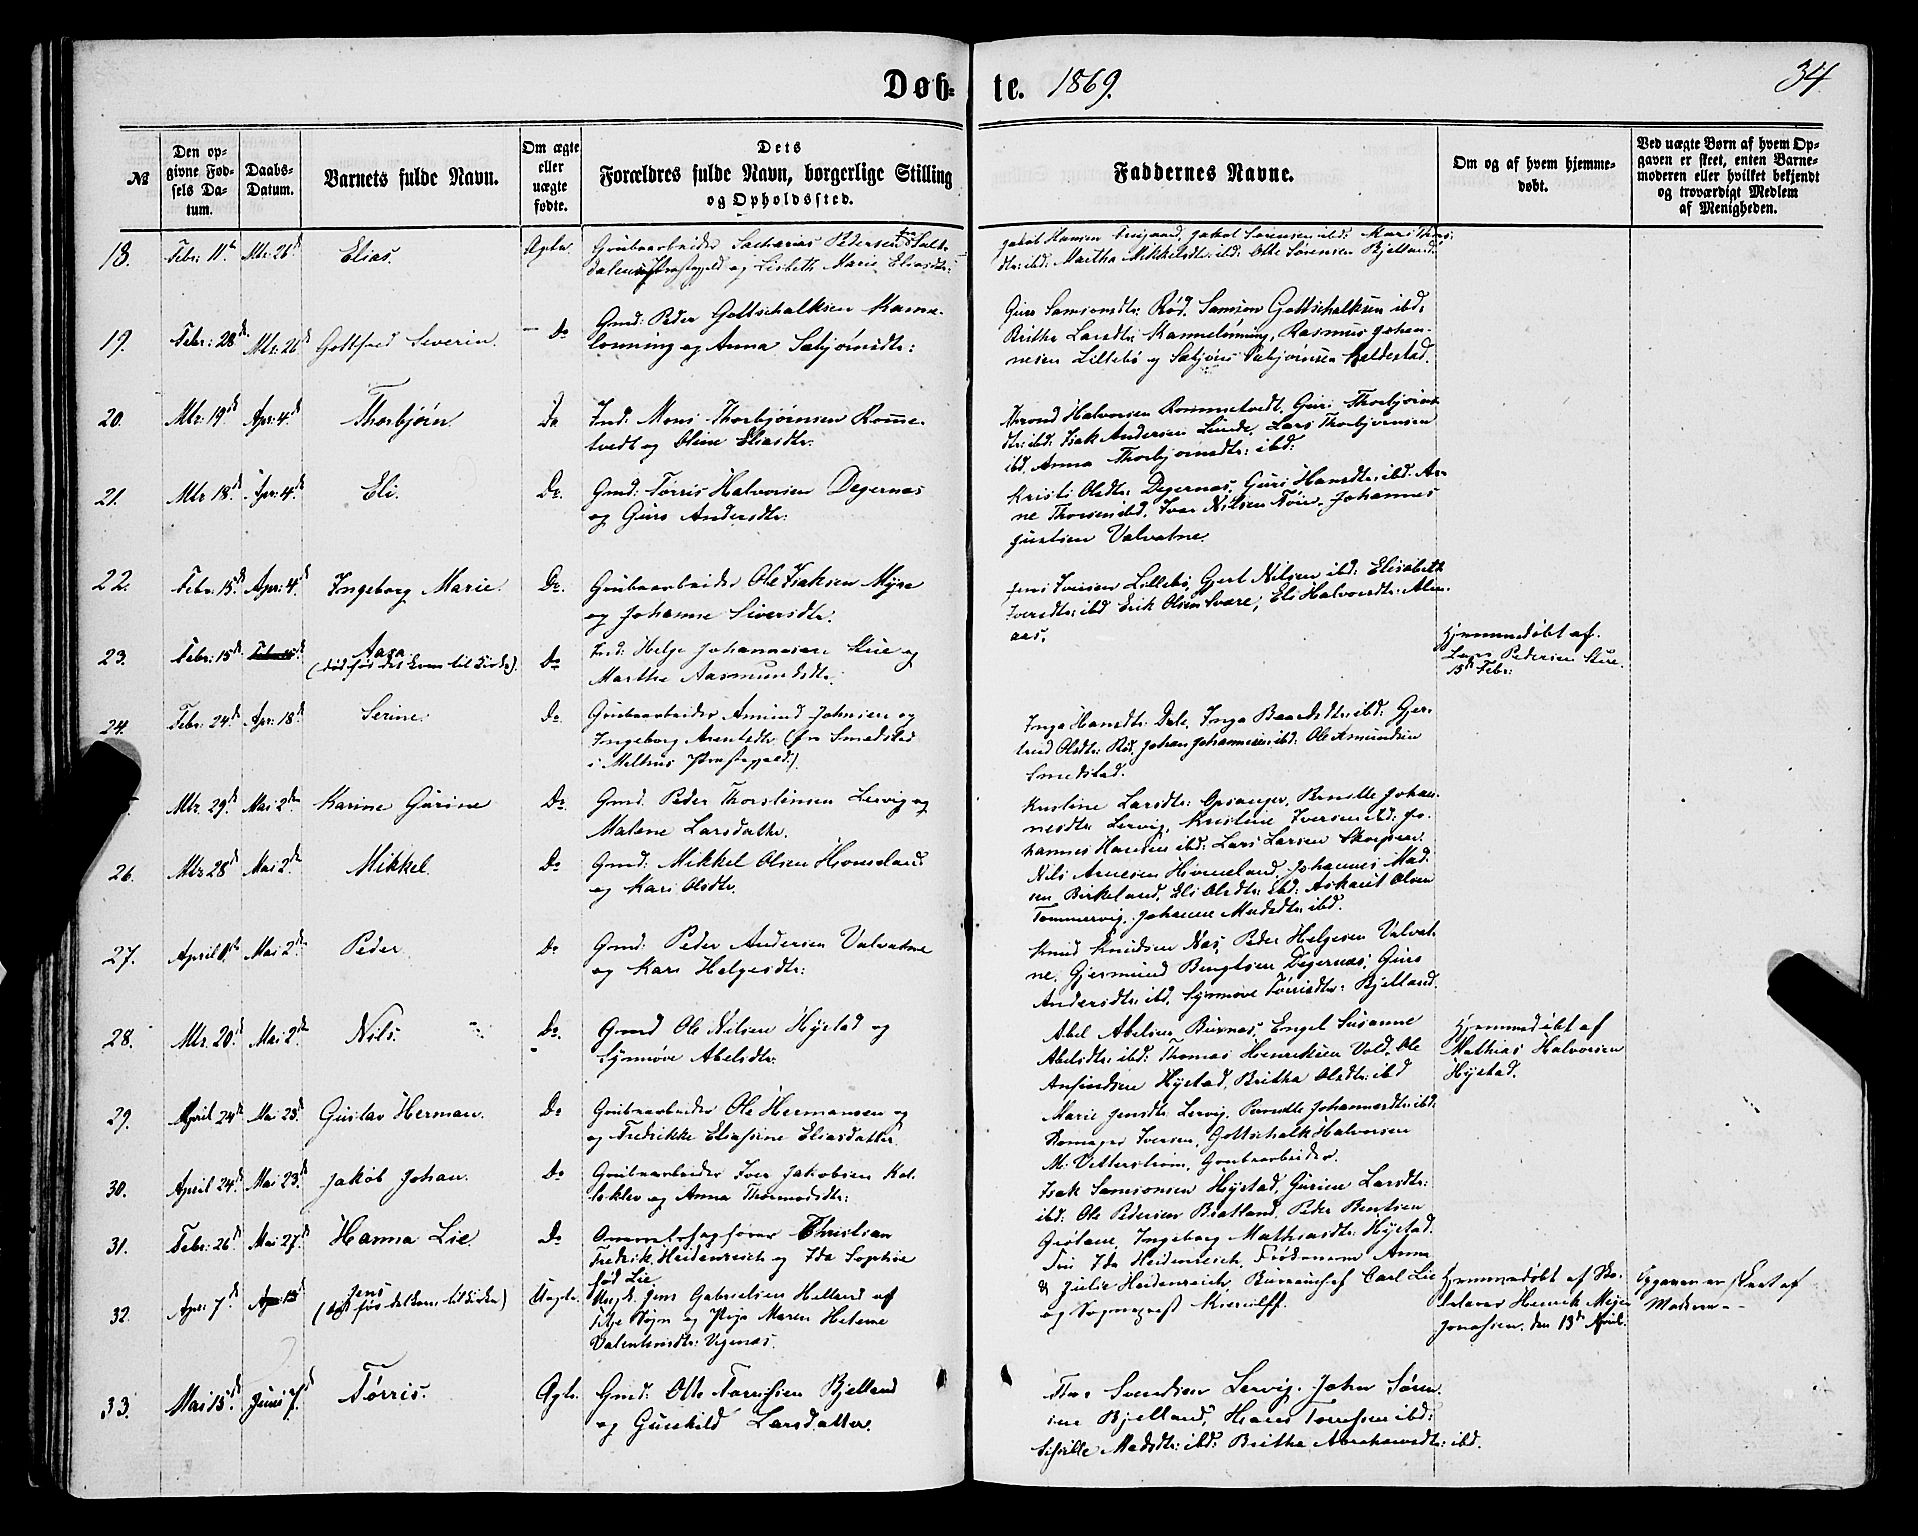 Døb- te. 1869. 34
№
Den opgivne Fødsels Datum.
Daabs-Datum.
Barnets fulde Navn.
Om ægte eller uægte fødte.
Dets Forældres fulde Navn, borgerlige Stilling og Opholdssted.
Faddernes Navne.
Om og af hvem hjemmedøbt.
Ved uægte Børn af hvem Opgaven er skeet, enten Barnemoderen eller hvilket bekjendt og troværdigt Medlem af Menigheden.
18. Febr: 11te Mts: 26d Elias. Ægte Grubearbeider Zacharias Pedersen fra
Præstegjeld og Lisbeth Marie Eliasdtr:
Jakob Hansen Jakob Sørensen ibd:
dtr: ibd: Martha Mikkelsdtr: ibd: Otte Sørensen Bjelland.
19. Febr: 28d Mts: 26d Gottfred Severin. Do Gmd: Peder Gottschalksen Kanne-
lønning og Anna Sebjørnsdtr:
Guro Samsonsdtr: Rød, Samson Gottschalksen ibd.
Britha Larsdtr: Kannelønning, Rasmus Johan-
nesen Lillebø og Sebjørn Sebjørnsen Heldestad.
20. Mts: 19d Apr: 4d Thorbjørn. Do Ind: Mons Thorbjørnsen Romme-
tvedt og Oline Eliasdtr:
Trond Halvorsen Rommetvedt, Guri Thorbjørns-
dtr: ibd: Isak Andersen Lunde, Lars Thorbjørnsen
ibd, Anna Thorbjørnsdtr: ibd:
21. Mts 18d Apr: 4d Eli. Do. Gmd: Tørris Halvorsen Degernæs
og Guro Andersdtr:
Kristi Olsdtr: Degernæs, Guri Hansdtr: ibd. Ar-
ne Thorsen ibd, Ivar Nilsen Johannes
Valvatne.
22. Febr: 15d Apr: 4d Ingeborg Marie. Do. Grubearbeider Ole Isaksen Myre
og Johanne Siversdtr:
Jens Iversen Lillebø, Gjert Nilsen ibd: Elisabeth
Iversdtr: ibd Erik Olsen Svare, Eli Halvorsdtr: Alm-
aas.
23. Febr: 15d Aasa
(død før det kom til Kirke). Do Ind: Helge Johannesen Stue og
Marthe Aasmundsdtr:
Hjemmedøbt af
Lars Pedersen Stue.
15d Febr:
24. Febr: 24d Apr: 18d Serine. Do Grubearbeider Amund Johnsen og
Ingeborg Arentsdtr: (fra Smedstad
i Melhus Præstegjeld).
Inga Hansdtr: Dale, Inga Baardsdtr: ibd: Gjer-
trud Olsdtr: Rød, Johan Johannesen ibd: Ole Amundsen
Smedstad.
Mts 29d Mai 2den Karine Gurine Do Gmd. Peder Thorstensen Lervig og
Malene Larsdatter.
Kristine Larsdtr: Opsanger, Pernille Johan-
nesdtr: Lervig, Kristine Iversen ibd: Jo-
hannes Hansen ibd: Lars Larsen Skorpen.
26. Mts 28 Mai 2d Mikkel. Do Gmd: Mikkel Olsen Hovneland
og Kari Olsdtr.
Nils Arnesen Hovneland, Johannes Mad-
sen Birkeland, Eli Olsdtr: ibd: Askaut Olsen
Tømmervig, Johanne Madsdtr: ibd.
27. April Mai 2den Peder. Do Gmd: Peder Andersen Valvatne
og Kari Helgesdtr:
Knud Knudsen Næs, Peder Helgesen Valvat-
ne, Gjermund Bengtsen Degernæs, Guro
Andersdtr: ibd, Synnøve Tørrisdtr: Bjelland.
28. Mts. 20d Mai 2den Nils. Do Gmd Ole Nilsen Hystad og
Synnøve Abelsdtr:
Abel Abelsen Engel Susanne
Abelsdtr: ibd: Thomas Henriksen Vold, Ole
Anfindsen Hystad, Britha Olsdtr: ibd
Hjemmedøbt af
Mathias Halvorsen
Hystad.
29. April 24d Mai 23d Gustav Herman. Do Grubearbeider Ole Hermansen og
og Fredrikke Eliassine Eliasdatter.
Marie Jensdtr: Lervig, Pernille Johannesdtr: ibd:
Iversen, Gottschalk Halvorsen
M. Vetterstrøm, Grubearbeider.
30. April 24d Mai 23d Jakob Johan. Do Grubearbeider Iver Jakobsen Kal-
lekleiv og Anna Thormodsdtr:
Isak Samsonsen Hystad, Gurine Larsdtr:
ibd: Ole Pedersen Bratland, Peder Bentsen
Ingeborg Mathiasdtr: Hystad.
31. Febr: 26d Mai 27d Hanna Lie. Do Overretssagfører Christian
Fredrik Heidenreich og Ida Sophie
fød Lie
Fru Ida Heidenreich, Frøknerne Anna
& Julie Heidenreich, Carl Lie
og Sognepræst
32. Apr: 7d Jens
(død før det kom til Kirken) Uægte. Ungk. Jens Gabrielsen Helland af
Sogn og Pige Maren Helene
Valentinsdtr:
Hjemmedøbt af
Henrik Meyer
Jonassen, den 13de April.
Opgaven er skeet af
Moderen
33. Mai 15d Juni 7d Tørris. Ægte. Gmd: Otte Tørrissen Bjelland
og Gunhild Larsdatter.
Svendsen Lervig, John Søren-
sen Bjelland, Hans Tørrissen ibd:
Sissille Madsdtr: ibd: Britha Abrahamsdtr: ibd.